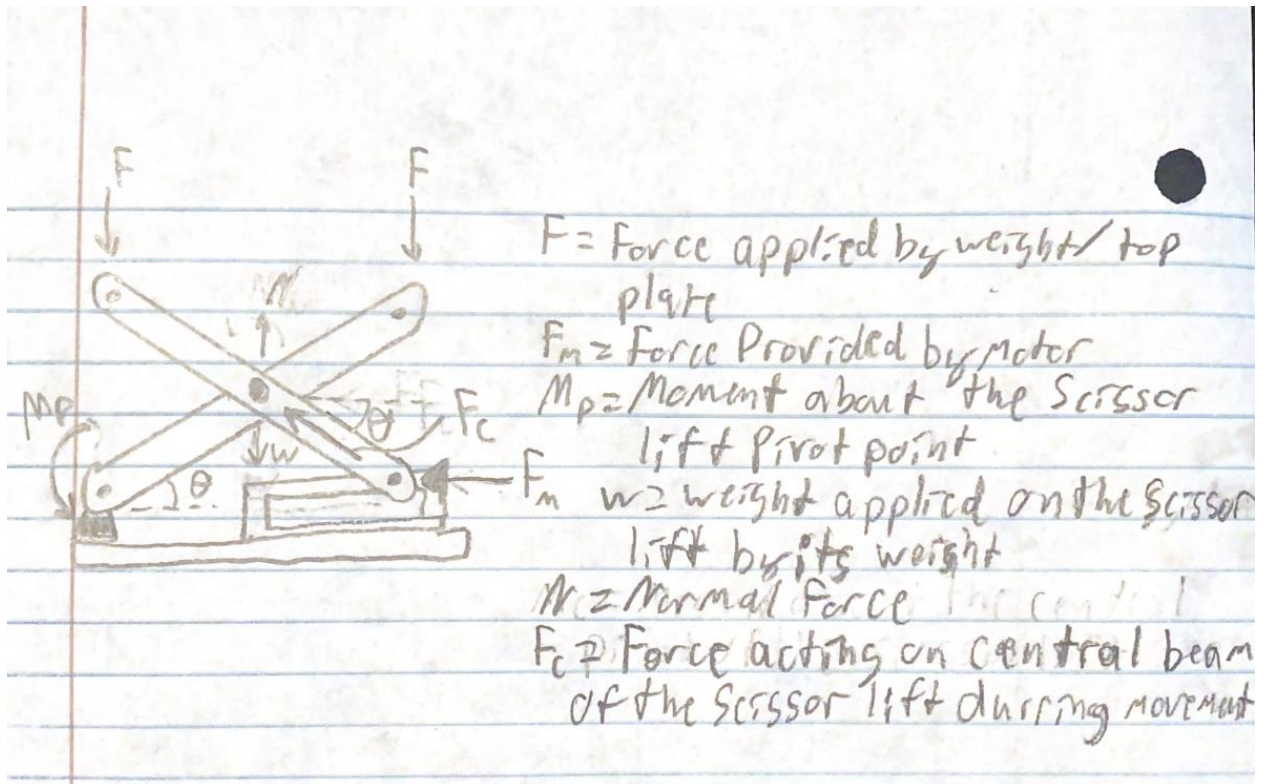 F
F
F = Force applied by weight/top
plate
Fm = Force Provided by motor
Mp = Moment about the Scissor
lift Pivot point
w = weight applied on the scissor
lift by its weight
N = Normal force
Fc = Force acting on central beam
of the Scissor lift durring movement
N
Mp
θ
Fc
w
θ
Fm